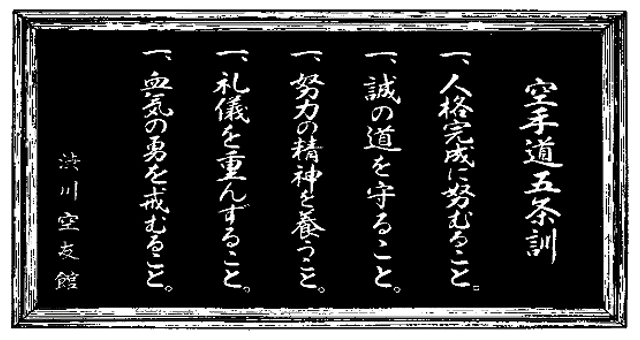 空手道五条訓
一、人格完成に努むること。
一、誠の道を守ること。
一、努力の精神を養うこと。
一、礼儀を重んずること。
一、血気の勇を戒むること。
渋川空友館